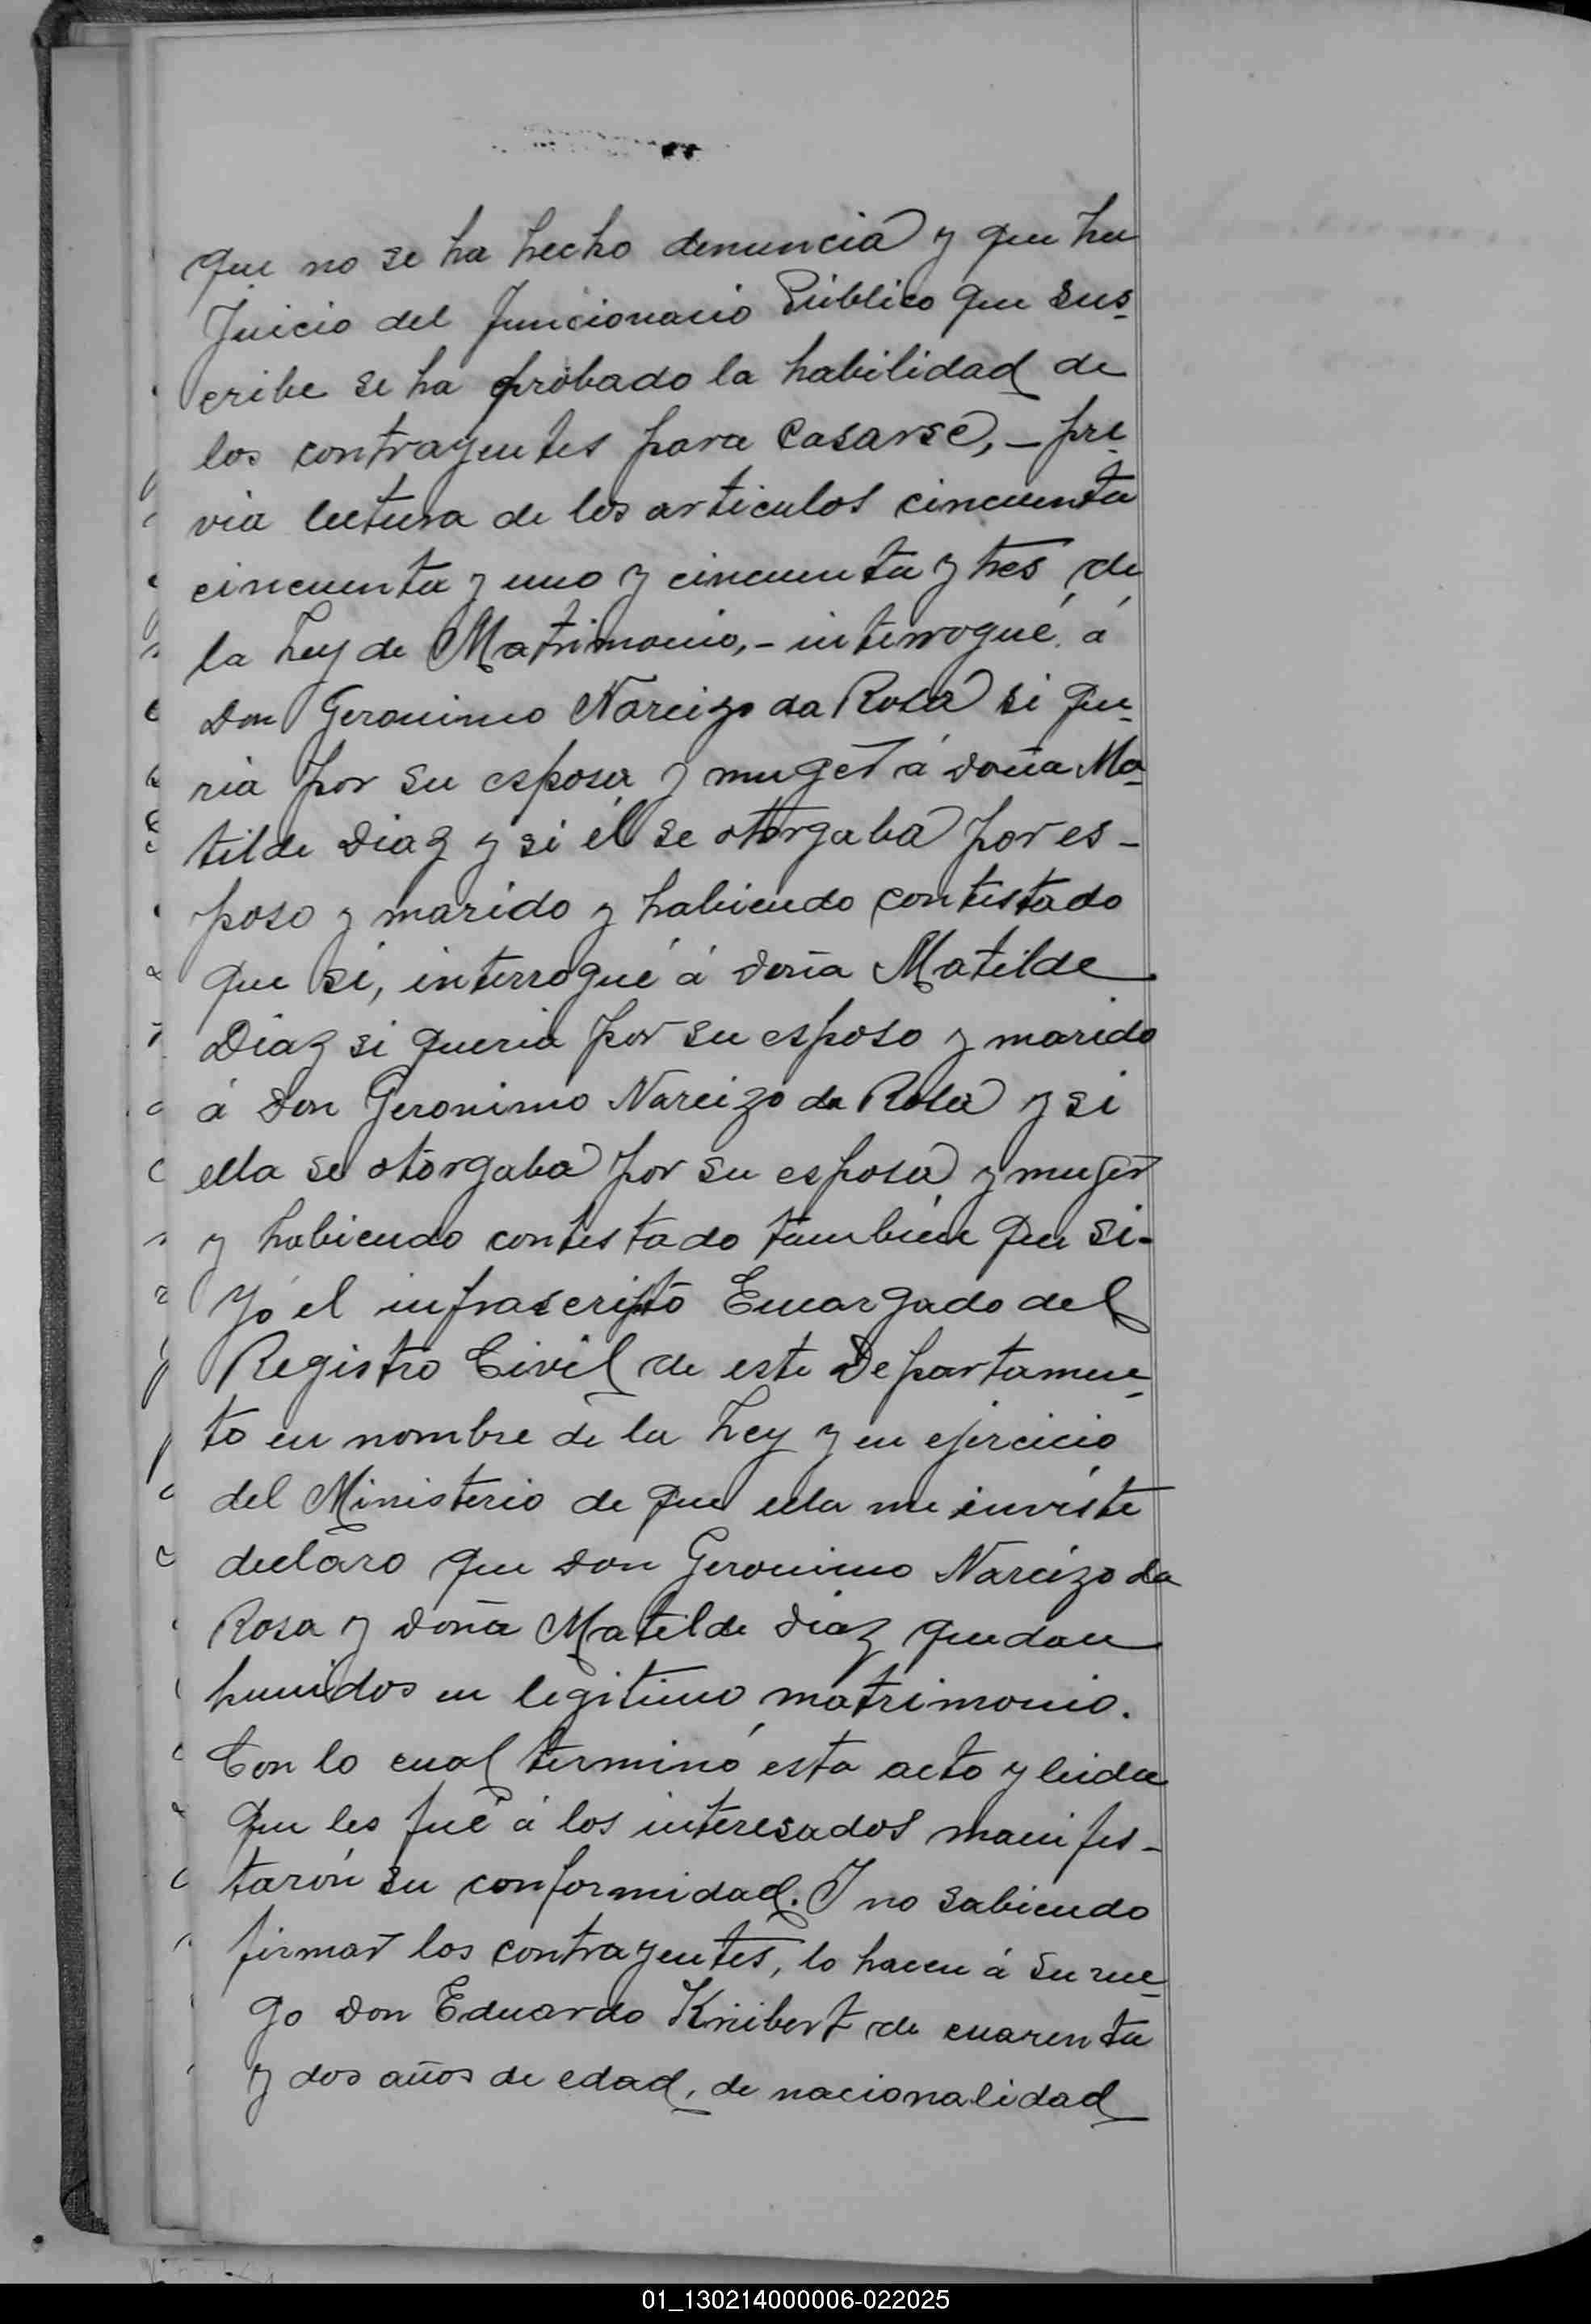 que no se ha hecho denuncia y que hu
Juicio del funcionario Público que sus-
cribe se ha probado la habilidad de
los contrayentes para casarse, - pre
via lectura de los articulos cincuenta
cincuenta y uno y cincuenta y tres de
la Ley de Matrimonio, - interrogué á
Don Geronimo Narcizo da Rosa si que-
ria por su esposa y muger á doña Ma-
tilde Diaz y si él se otorgaba por es-
poso y marido y habiendo contestado
que sí, interrogué á doña Matilde
Diaz si queria por su esposo y marido
á Don Geronimo Narcizo da Rosa y si
ella se otorgaba por su esposa y muger
y habiendo contestado tambien que si-
Yó el infrascripto Encargado del
Registro Civil de este Departamen-
to en nombre de la Ley y en ejercicio
del Ministerio de que ella me inviste
declaro que don Geronimo Narcizo da
Rosa y doña Matilde Diaz quedan
hunidos en legitimo matrimonio.
Con lo cual terminó esta acto y leida
que les fué á los interesados manifes-
tarón su conformidad. Y no sabiendo
firmar los contrayentes, lo hacen á su rue-
go Don Eduardo Knibert de cuarenta
y dos años de edad, de nacionalidad
01_130214000006-022025